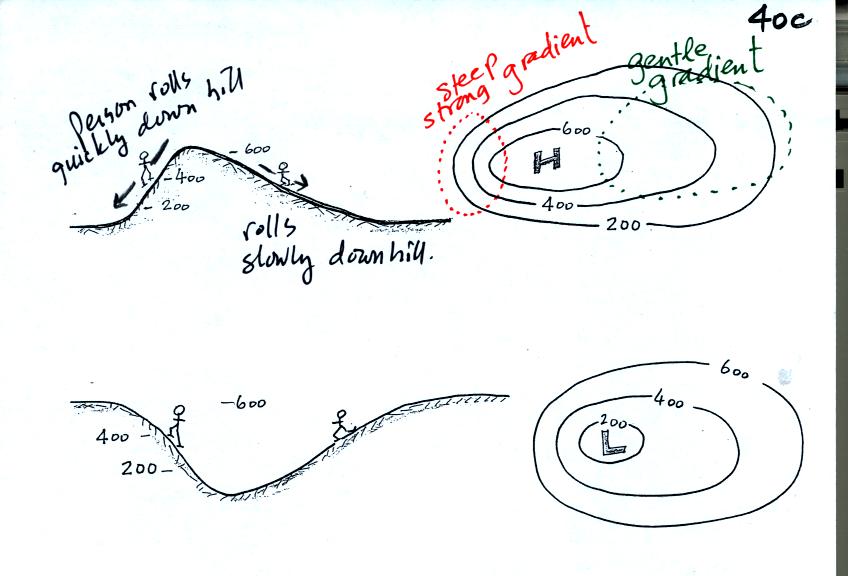 40c
Person rolls
quickly down hill
steep
strong gradient
gentle
gradient
- 600
- 400
- 200
600
H
400
200
rolls
slowly downhill.
- 600
400 -
200 -
600
400
200
L